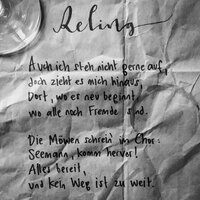 Reling
Auch ich steh nicht gerne auf,
doch zieht es mich hinaus,
Dort, wo es neu beginnt,
wo alle noch Fremde sind.
Die Möwen schrein im Chor:
Seemann, komm hervor!
Alles bereit,
und kein Weg ist zu weit.